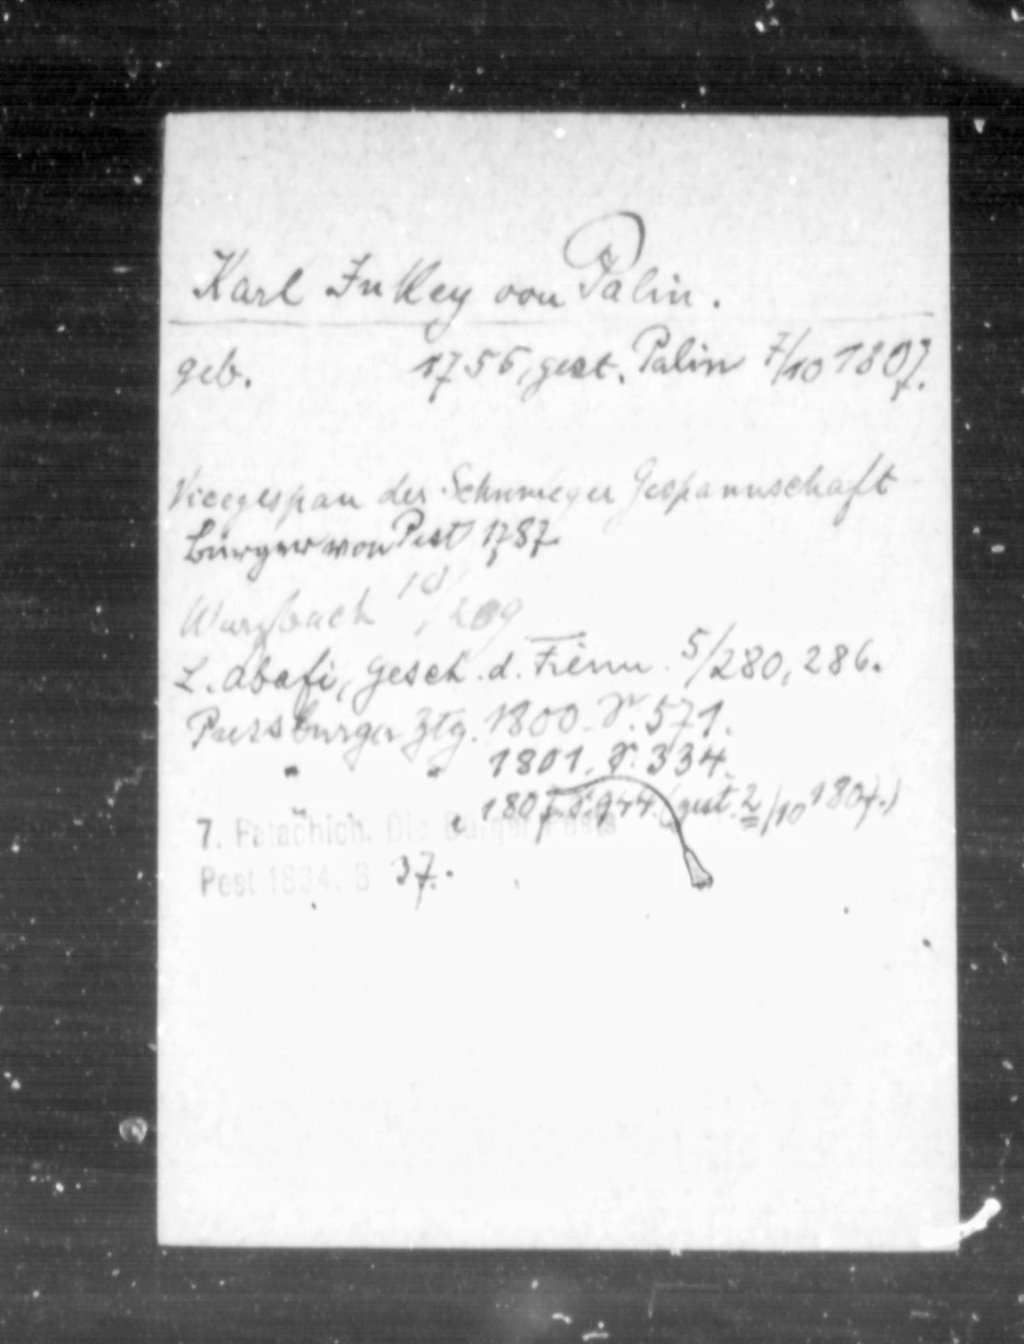 Karl Inkey von Palin.
geb. 1756, gest. Palin 7/10 1807.
Vicegespan der Schümeger Gespannschaft
Bürger von Pest 1787
Wurzbach 10/209
L. Abafi, Gesch. d. Freim. 5/280, 286.
Pressburger Ztg. 1800. S. 571.
" " 1801. S. 334.
" 1807. S. 944. (gest. 2/10 1807.)
7. Patachich. Die Bürger Pests
Pest 1834. S. 37.